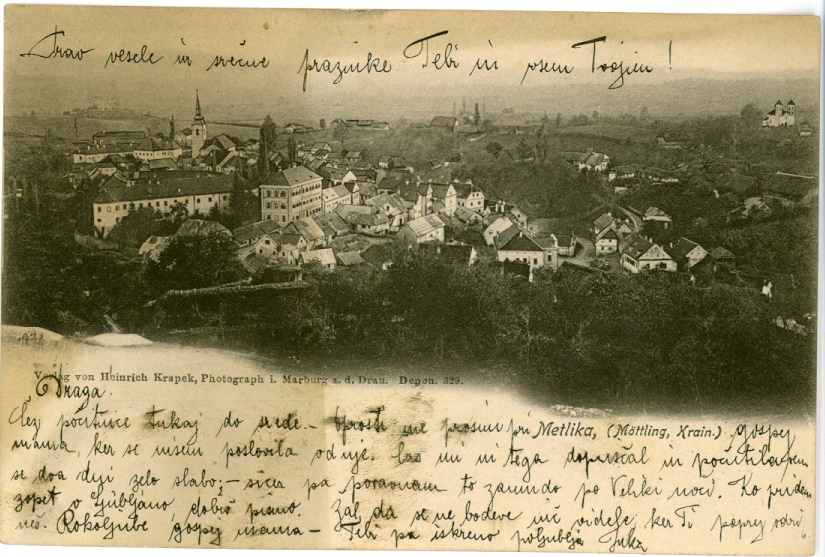 Prav vesele in srečne praznike Tebi in vsem Tvojim!
Verlag von Heinrich Krapek, Photograph i. Marburg a. d. Drau. Depon. 329.
Draga.
čez počitnice tukaj do srede. – Oprosti me prosim pri
Metlika, (Möttling, Krain.)
gospej
mama, ker se nisem poslovila od nje. Čas mi ni tega dopuščal in počutila sem
se dva dni zelo slabo; – sicer pa poravnam to zamudo po Veliki noči. Ko pridem
zopet v Ljubljano dobiš pismo. Žal, da se ne bodeve nič videle, ker Ti poprej odri-
neš. Rokoljube gospej mama – Tebi pa iskreno poljublja